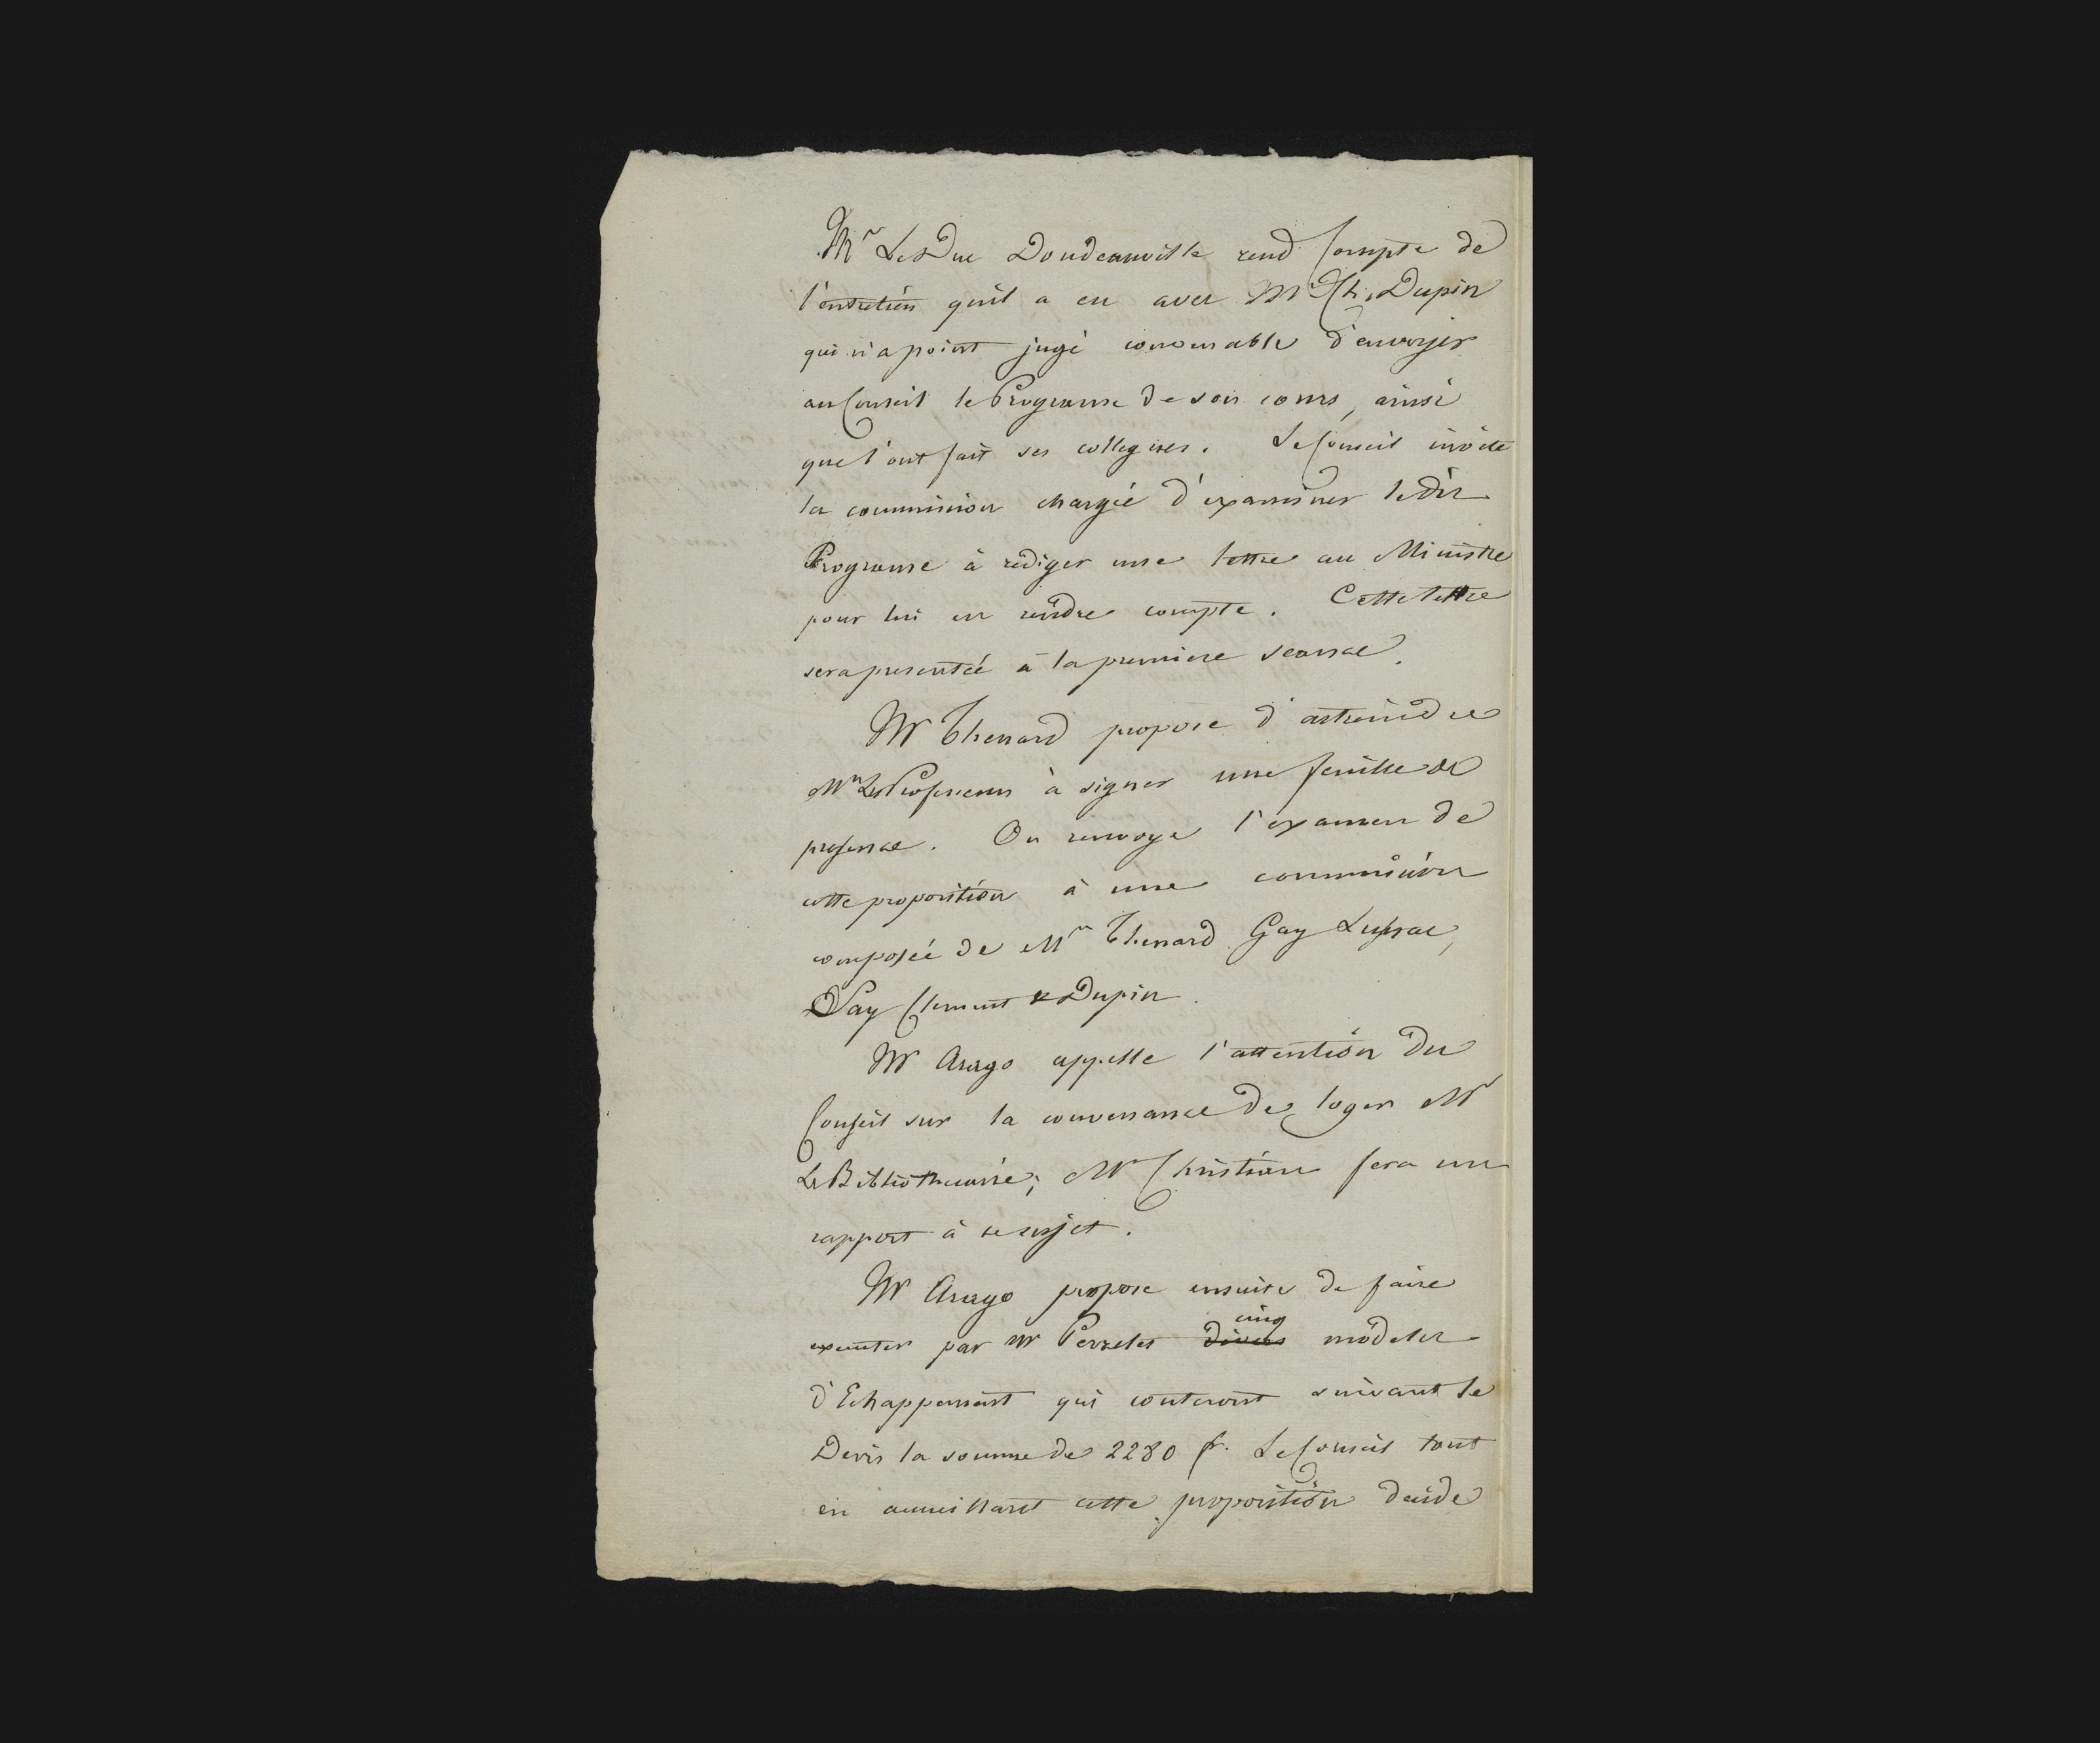 Mr Le Duc Doudeauville rend Compte de
l'entretien qu'il a eu avec Mr Ch. Dupin
qui n'a point jugé convenable d'envoyer
au Conseil le Programe de son cours, ainsi
que l'ont fait ses collegues. Le Conseil invite
la commission chargée d'examiner le dit
Programe à rédiger une lettre au Ministre
pour lui en rendre compte. Cette lettre
sera presentée à la premiere seance.
Mr Thenard propose d'astreindre
Mrs Les Professeurs à signer une feuille de
presence. On renvoye l'examen de
cette proposition à une commission
composée de Mrs Thenard Gay Lussac,
Say Clement & Dupin.
Mr Arago appelle l'attention du
Conseil sur la convenance de loger Mr
Le Bibliothecaire; Mr Christian fera un
rapport à ce sujet.
Mr Arago propose ensuite de faire
cinq
executer par Mr Perrelet divers modeles
d'Echappement qui couteront suivant le
Devis la somme de 2280 fr. Le Conseil tout
en accueillant cette proposition decide